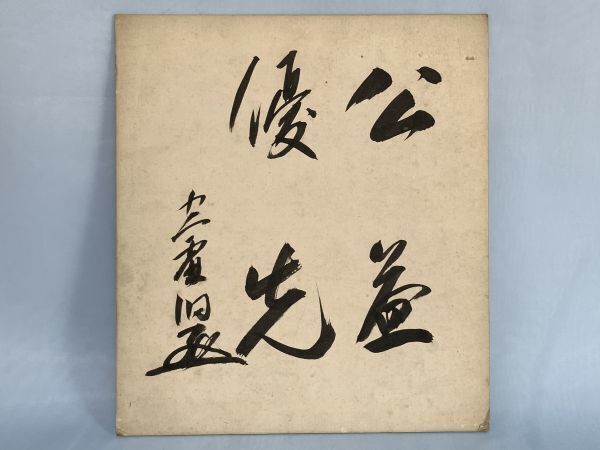 公益
優先